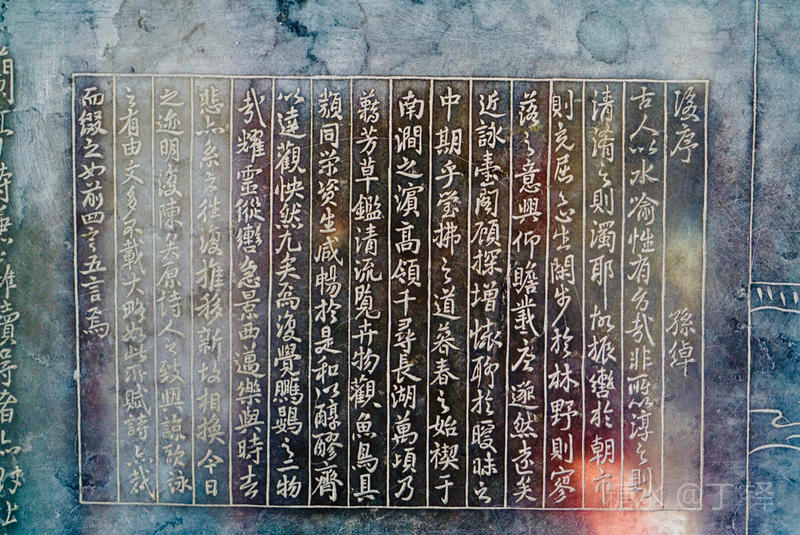 後序 孫綽
古人以水喻性有旨哉非所以淳之則
清淆之則濁耶故振轡於朝市
則充屈之心生閑步於林野則寥
落之意興仰瞻羲唐邈然遠矣
近詠臺閣顧探增懷聊於曖昧之
中期乎瑩拂之道暮春之始禊于
南澗之濱高領千尋長湖萬頃乃
藉芳草鑑清流覽卉物觀魚鳥具
類同榮資生咸暢於是和以醇醪齊
以達觀快然兀矣焉復覺鵬鷃之二物
哉耀靈縱轡急景西邁樂與時去
悲亦系之往復推移新故相換今日
之迹明復陳矣原詩人之致興諒歌詠
之有由文多不載大略如此所賦詩亦裁
而綴之如前四言五言焉
@丁铎